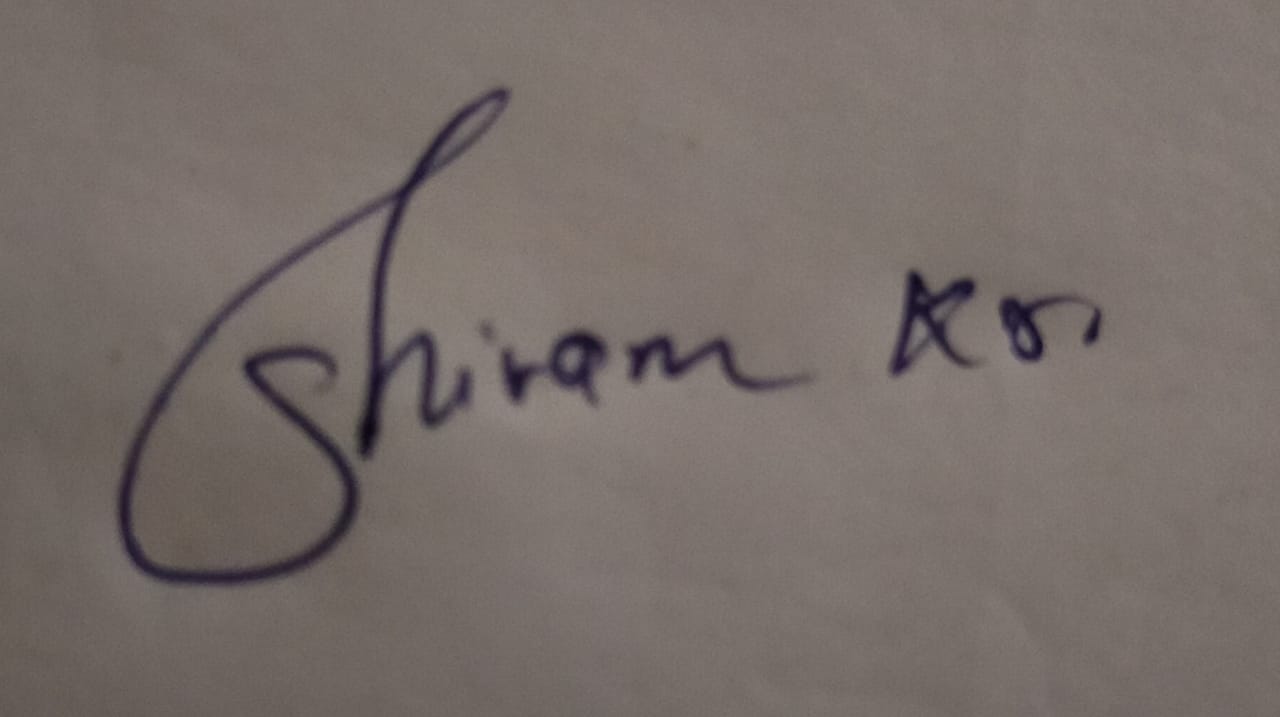 Shiram Kr.